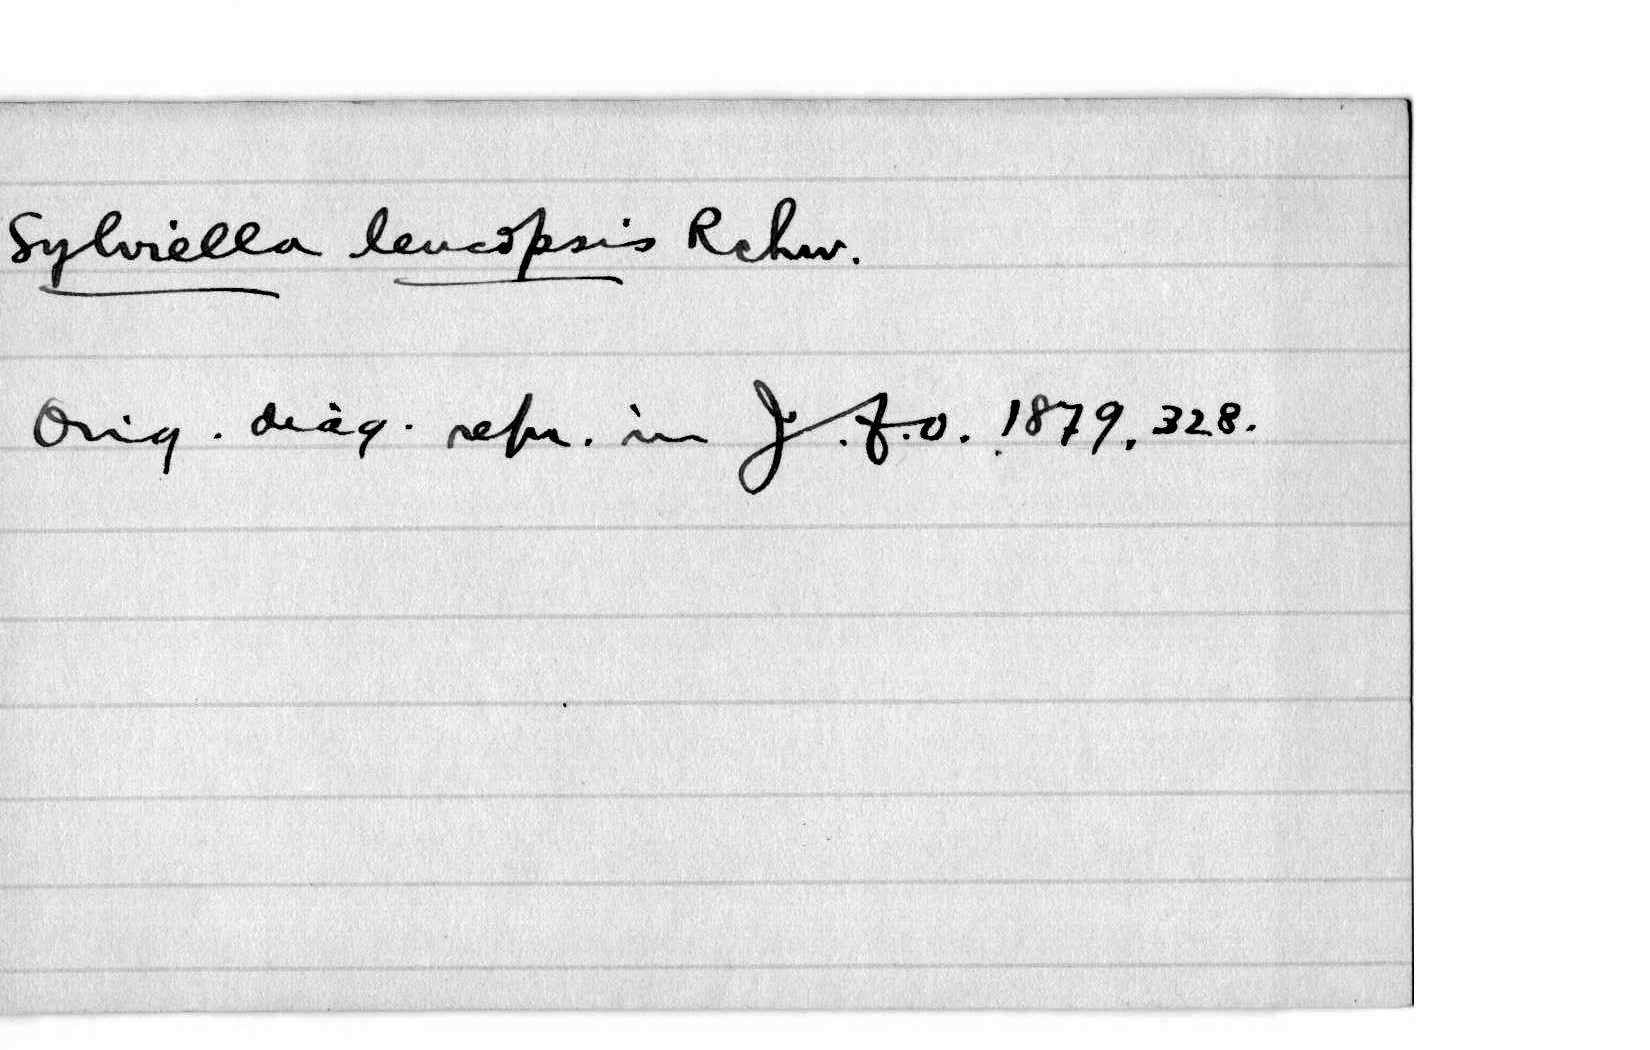 Sylviella leucopsis Rchw.
Orig. diag. repr. in J.f.O. 1879, 328.